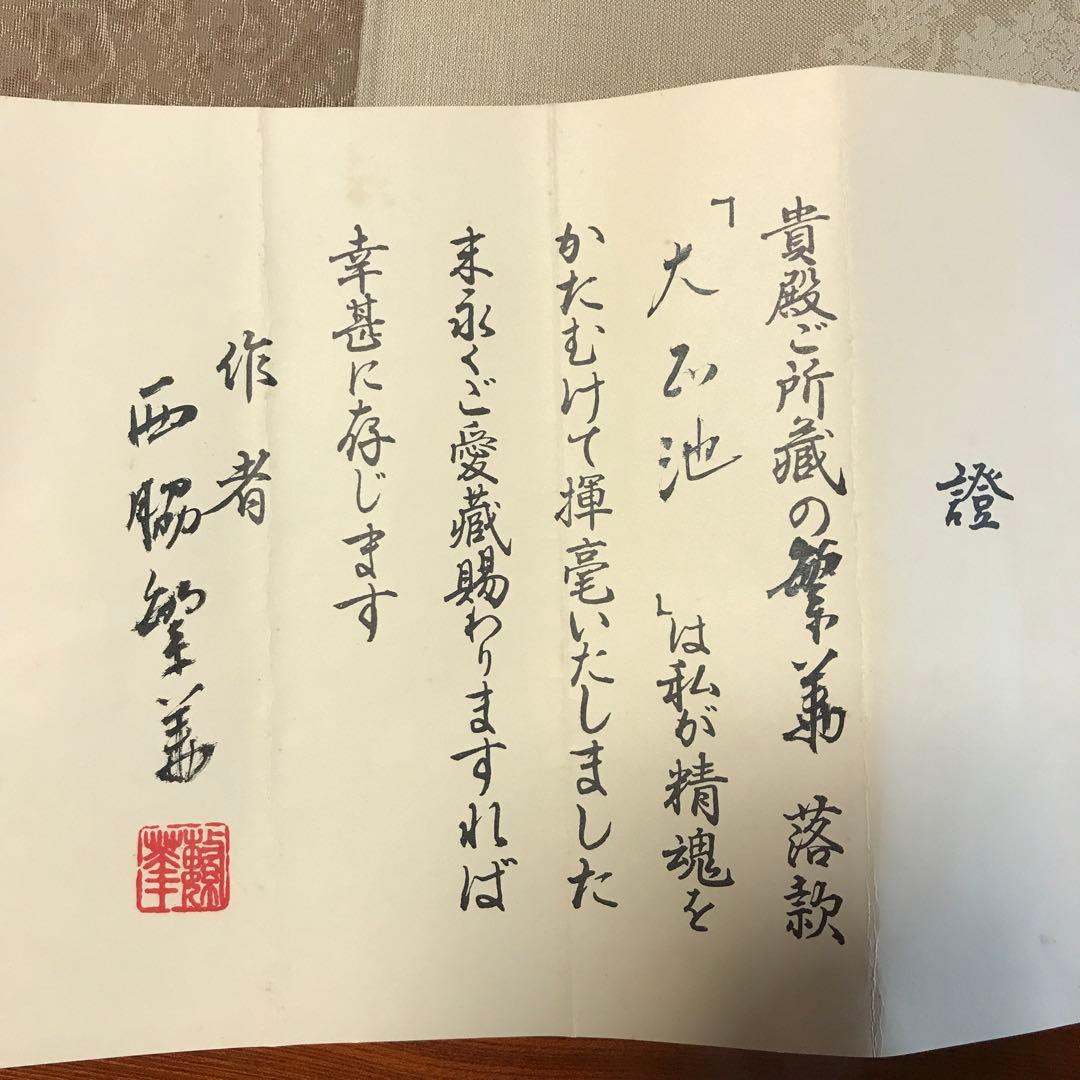 證
貴殿ご所藏の繁華落款
「大正池」は私が精魂を
かたむけて揮毫いたしました
末永くご愛藏賜わりますれば
幸甚に存じます
作者
西脇繁華
繁華